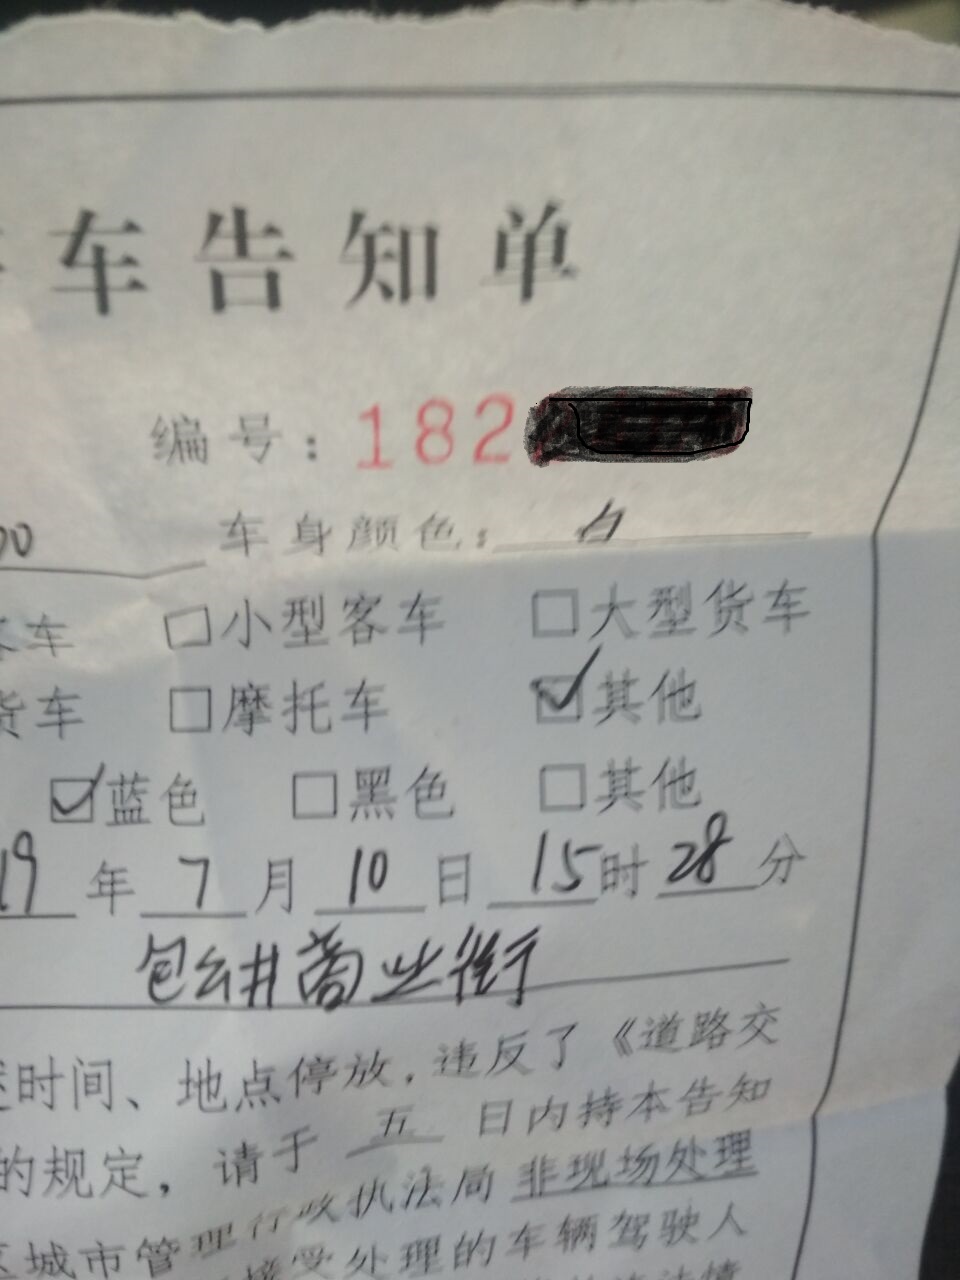 车告知单
编号：182
00 车身颜色：白
客车 □小型客车 □大型货车
货车 □摩托车 ☑其他
☑蓝色 □黑色 □其他
19年7月10日15时28分
商业街
时间、地点停放，违反了《道路交
的规定，请于五日内持本告知
区城市管理行政执法局非现场处理
接受处理的车辆驾驶人